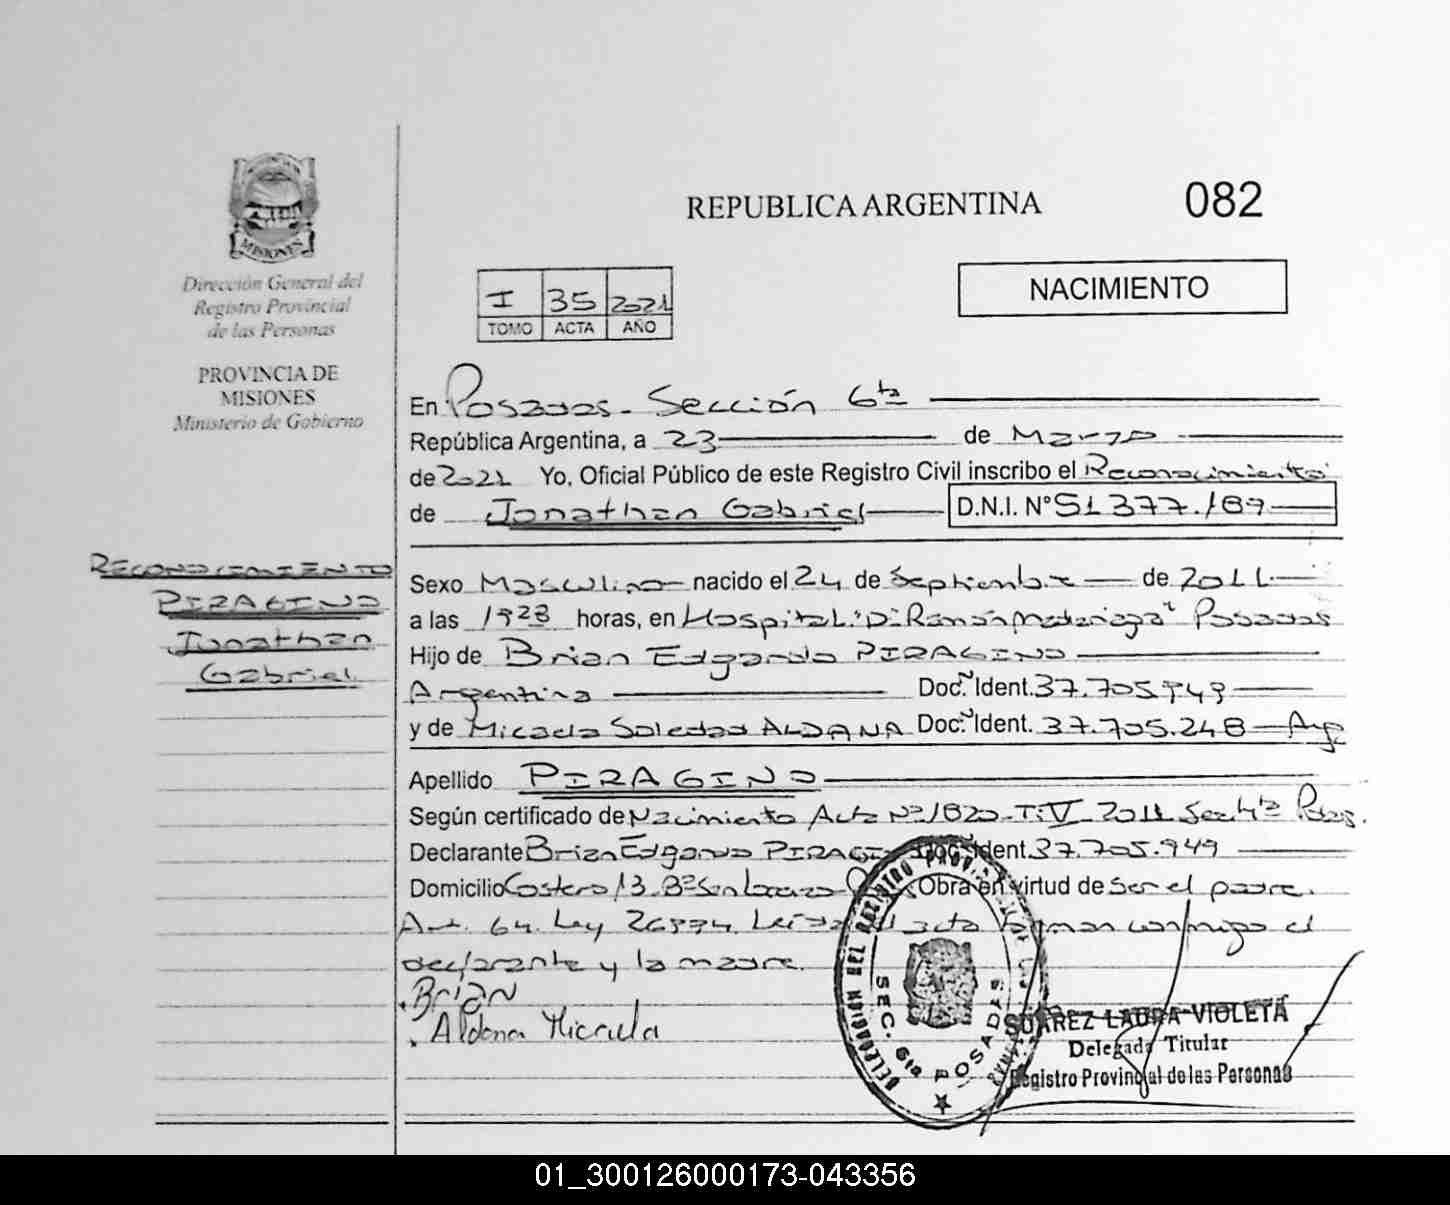 MISIONES
Dirección General del
Registro Provincial
de las Personas
PROVINCIA DE
MISIONES
Ministerio de Gobierno
REPUBLICA ARGENTINA
082
I 35 2021
TOMO ACTA AÑO
NACIMIENTO
En Posadas - Sección 6ta
República Argentina, a 23 de Marzo
de 2021 Yo, Oficial Público de este Registro Civil inscribo el Reconocimiento
de Jonathan Gabriel D.N.I. N° 51377.189
RECONOCIMIENTO
PIRAGINO
Jonathan
Gabriel
Sexo Masculino nacido el 24 de Septiembre de 2011
a las 1928 horas, en Hospital "Dr Ramón Madariaga" Posadas
Hijo de Brian Edgardo PIRAGINO
Argentina Doc. Ident. 37.705.949
y de Micaela Soledad ALDANA Doc. Ident. 37.705.248 Arg
Apellido PIRAGINO
Según certificado de Nacimiento Acta N° 1820 - T: V 2011 Sec 4ta Pdas.
Declarante Brian Edgardo PIRAGINO Doc. Ident. 37.705.949
Domicilio Costero 13. B° San Lorenzo Obra en virtud de ser el padre.
Art. 64. Ley 26994. Leída el acta firman conmigo el
declarante y la madre.
Brian
Aldana Micaela
DELEGACION DEL REGISTRO PROV.
SEC. 6ta POSADAS
SUAREZ LAURA VIOLETA
Delegada Titular
Registro Provincial de las Personas
01_300126000173-043356